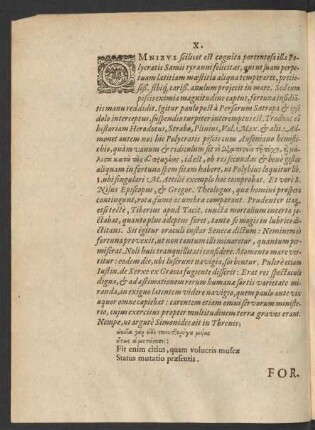 X.
OMNIBVS scilicet est cognita portentosa illa Po-
lycratis Samii tyranni felicitas, qui ut suam perpe-
tuam lætitiam mœstitia aliqua temperaret, pretio-
siss. sibiq; cariss. anulum projecit in mare. Sed cum
piscis eximia magnitudine captus, fortuna insidiã-
tis manu reddidit. Igitur paulo post à Persarum Satrapa &
dolo interceptus, suspendio turpiter interemptus est. Tradunt eã
historiam Herodotus, Strabo, Plinius, Val. Max. & alii. Ad-
monet autem nos hic Polycratis piscis cum Ausoniano hemisti-
chio, quàm vanum & ridiculum sit
id est, ob res secundas & bene gestas
aliquam in fortuna spem sitam habere, ut Polybius loquitur lib.
ubi singulare M. Attilii exemplo hoc comprobat. Et verè S.
Nilus Episcopus, & Gregor. Theologus, quæ homini prospera
contingunt, rota, fumo ac umbræ comparant. Prudenter itaq;
etsi tectè, Tiberius apud Tacit. cuncta mortalium incerta je-
ctabat, quanto plus adeptus foret, tanto se magis in lubrico di-
ctitans. Sit igitur oraculi instar Senecæ dictum: Neminem eò
fortuna provexit, ut non tantum illi minaretur, quantum per-
miserat. Noli huic tranquillitati considere. Momento mare ver-
titur: eodem die, ubi luserunt navigia, sorbentur. Pulcrè etiam
Iustin. de Xerxe ex Græcia fugiente disserit: Erat res spectaculo
digna, & ad æstimationem rerum humanæ sortis varietate mi-
randa, in exiguo latentem videre navigio, quem paulo ante vix
æquor omne capiebat: carentem etiam omni servorum ministe-
rio, cujus exercitus propter multitudinem terræ graves erant.
Nempe, ut argutè Simonides ait in Threnis:
Fit enim citius, quam volucris muscæ
Status mutatio præsentis.
FOR.